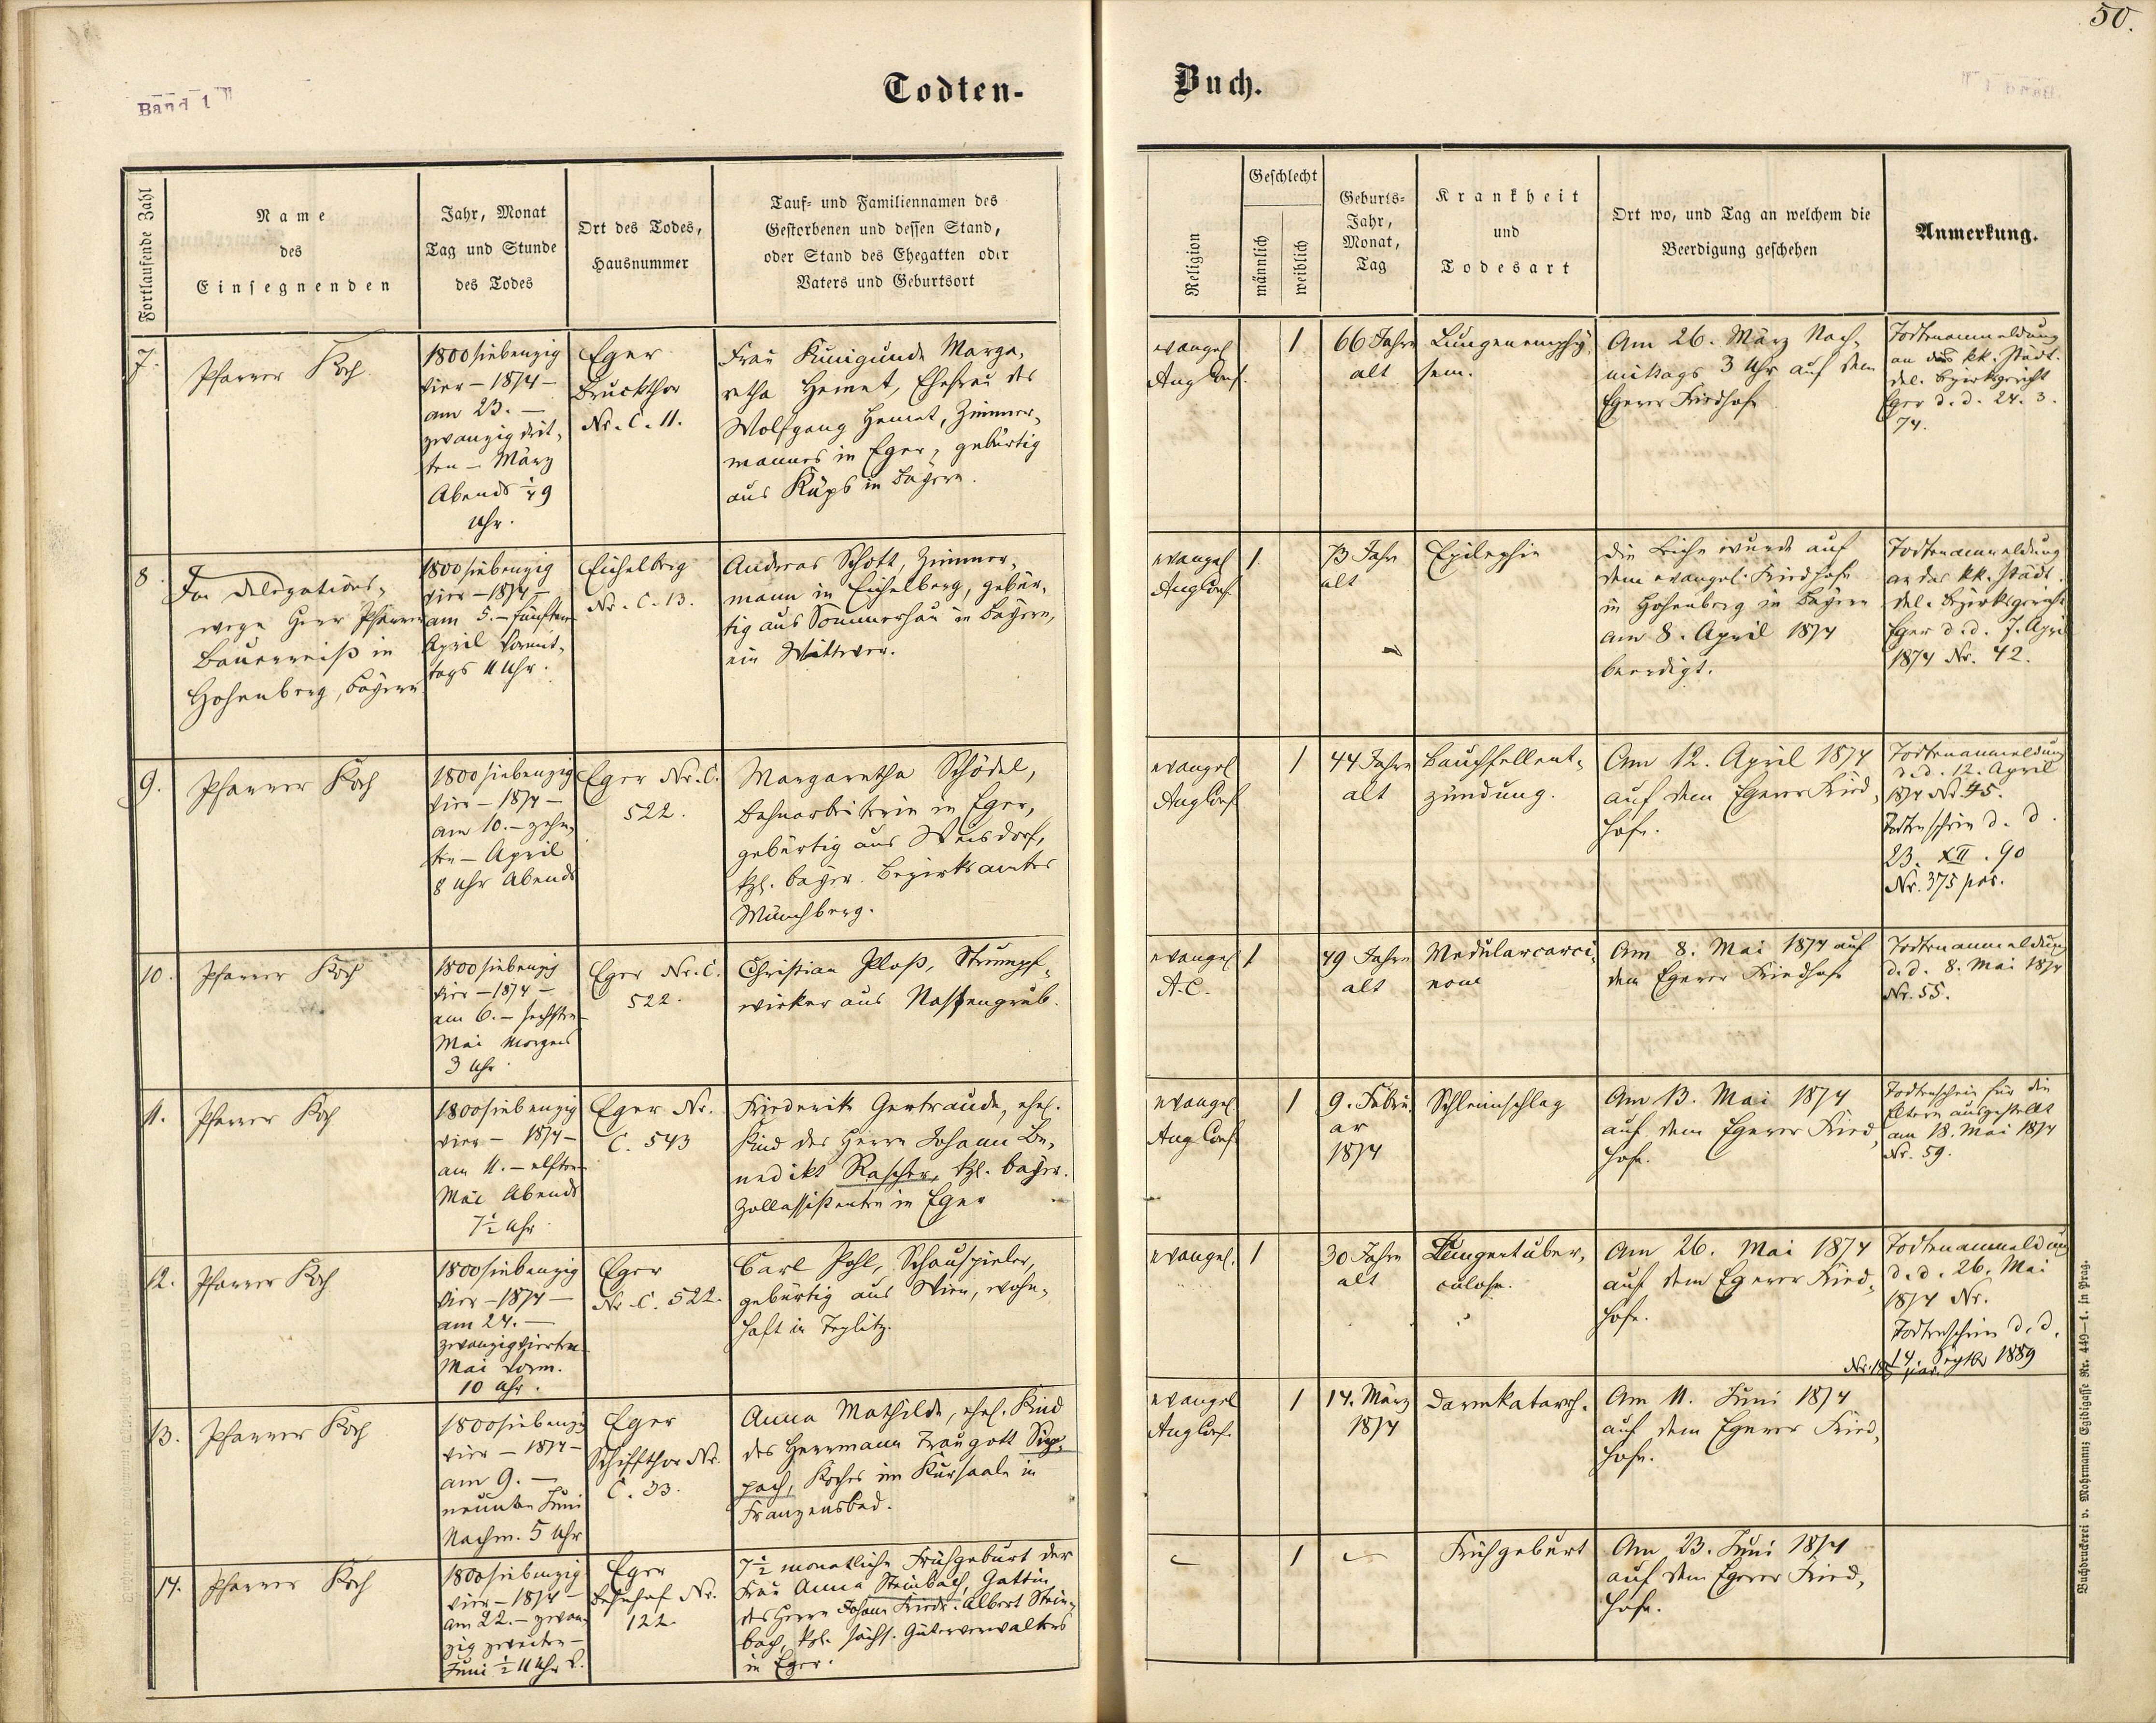 50.
Band 1
Todten-
Buch.
Fortlaufende Zahl
Name
des
Einsegnenden
Jahr, Monat
Tag und Stunde
des Todes
Ort des Todes,
Hausnummer
Tauf- und Familiennamen des
Gestorbenen und dessen Stand,
oder Stand des Ehegatten oder
Vaters und Geburtsort
Religion
Geschlecht
männlich
weiblich
Geburts-
Jahr,
Monat,
Tag
Krankheit
und
Todesart
Ort wo, und Tag an welchem die
Beerdigung geschehen
Anmerkung.
7.
Pfarrer Koch
1800 siebenzig
vier – 1874 –
am 23. –
zwanzig drit-
ten – März
Abends 9
Uhr.
Eger
Bruckthor
Nr. C. 11.
Frau Kunigunde Marga-
retha Hemet, Ehefrau des
Wolfgang Hemet, Zimmer-
mannes in Eger, gebürtig
aus Küps in Bayern.
evangel
Aug Conf.
1
66 Jahre
alt
Lungenemphy-
sem.
Am 26. März Nach-
mittags 3 Uhr auf dem
Egerer Friedhofe
Todtenanmeldung
an das kk. städt.
del. Bezirksgericht
Eger d. d. 24. 3.
74.
8.
Im Delegations-
wege Herr Pfarrer
Bauerreiß in
Hohenberg, Bayern
1800 siebenzig
vier – 1874 –
am 5. – fünften
April Vormit-
tags 11 Uhr.
Eichelberg
Nr. C. 13.
Andreas Schott, Zimmer-
mann in Eichelberg, gebür-
tig aus Sommerhau in Bayern,
ein Wittwer.
evangel
Aug Conf.
1.
73 Jahr
alt
Epilepsie
Die Leiche wurde auf
dem evangel. Friedhofe
in Hohenberg in Bayern
am 8. April 1874
beerdigt.
Todtenanmeldung
an das kk. städt.
del. Bezirksgericht
Eger d. d. 7. April
1874 Nr. 42.
9.
Pfarrer Koch
1800 siebenzig
vier – 1874 –
am 10. – zehn-
ten – April
8 Uhr Abends
Eger Nr. C.
522.
Margaretha Schödel,
Bahnarbeiterin in Eger,
gebürtig aus Weisdorf,
kgl. bayer. Bezirksamtes
Münchberg.
evangel
Aug Conf.
1
44 Jahre
alt
Bauchfellent-
zündung.
Am 12. April 1874
auf dem Egerer Fried-
hofe.
Todtenanmeldung
d. d. 12. April
1874 Nr. 45.
Todtenschein d. d.
23. XII. 90
Nr. 375
10.
Pfarrer Koch
1800 siebenzig
vier – 1874 –
am 6. – sechsten –
Mai Morgens
3 Uhr.
Eger Nr. C.
522.
Christian Ploß, Strumpf-
wirker aus
evangel
A. C.
1
49 Jahre
alt
Medularcarci-
nom
Am 8. Mai 1874 auf
dem Egerer Friedhofe
Todtenanmeldung
d. d. 8. Mai 1874
Nr. 55.
11.
Pfarrer Koch
1800 siebenzig
vier – 1874 –
am 11. – elften –
Mai Abends
7½ Uhr.
Eger Nr.
C. 543
Friederike Gertraude, ehel.
Kind des Herrn Johann Be-
nedikt Rascher, kgl. bayer.
Zollassistenten in Eger
evangel.
Aug Conf.
1
9. Febru-
ar
1874
Schleimschlag
Am 13. Mai 1874
auf dem Egerer Fried-
hofe.
Todtenschein für die
Eltern ausgestellt
am 18. Mai 1874
Nr. 59.
12.
Pfarrer Koch
1800 siebenzig
vier – 1874 –
am 24. –
zwanzigvierten –
Mai Vorm.
10 Uhr.
Eger
Nr. C. 522.
Carl Pohl, Schauspieler,
gebürtig aus Wien, wohn-
haft in Teplitz.
evangel.
1
30 Jahre
alt
Lungentuber-
culose.
Am 26. Mai 1874
auf dem Egerer Fried-
hofe.
Todtenanmeldung
d. d. 26. Mai
1874 Nr.
Todtenschein d. d.
14. Septbr 1889
13.
Pfarrer Koch
1800 siebenzig
vier – 1874 –
am 9. –
neunten Juni
Nachm. 5 Uhr
Eger
Schiffthor Nr.
C. 33.
Anna Mathilde, ehel. Kind
des Herrmann Traugott Sup-
pach, Koches im Kursaale in
Franzensbad.
evangel
Aug Conf.
1
14. März
1874
Darmkatarrh.
Am 11. Juni 1874
auf dem Egerer Fried-
hofe.
14.
Pfarrer Koch
1800 siebenzig
vier – 1874 –
am 22. – zwan-
zig zweiten –
Juni ½ 11 Uhr
Eger
Bahnhof Nr.
122.
7½ monatliche Frühgeburt der
Frau Anna Steinbach, Gattin
des Herrn Johann Friedr. Albert Stein-
bach, kgl. sächs. Güterverwalters
in Eger.
1
Frühgeburt
Am 23. Juni 1874
auf dem Egerer Fried-
hofe.
Buchdruckerei v. Mohrmann Egidigasse Nr. 449—1. in Prag.